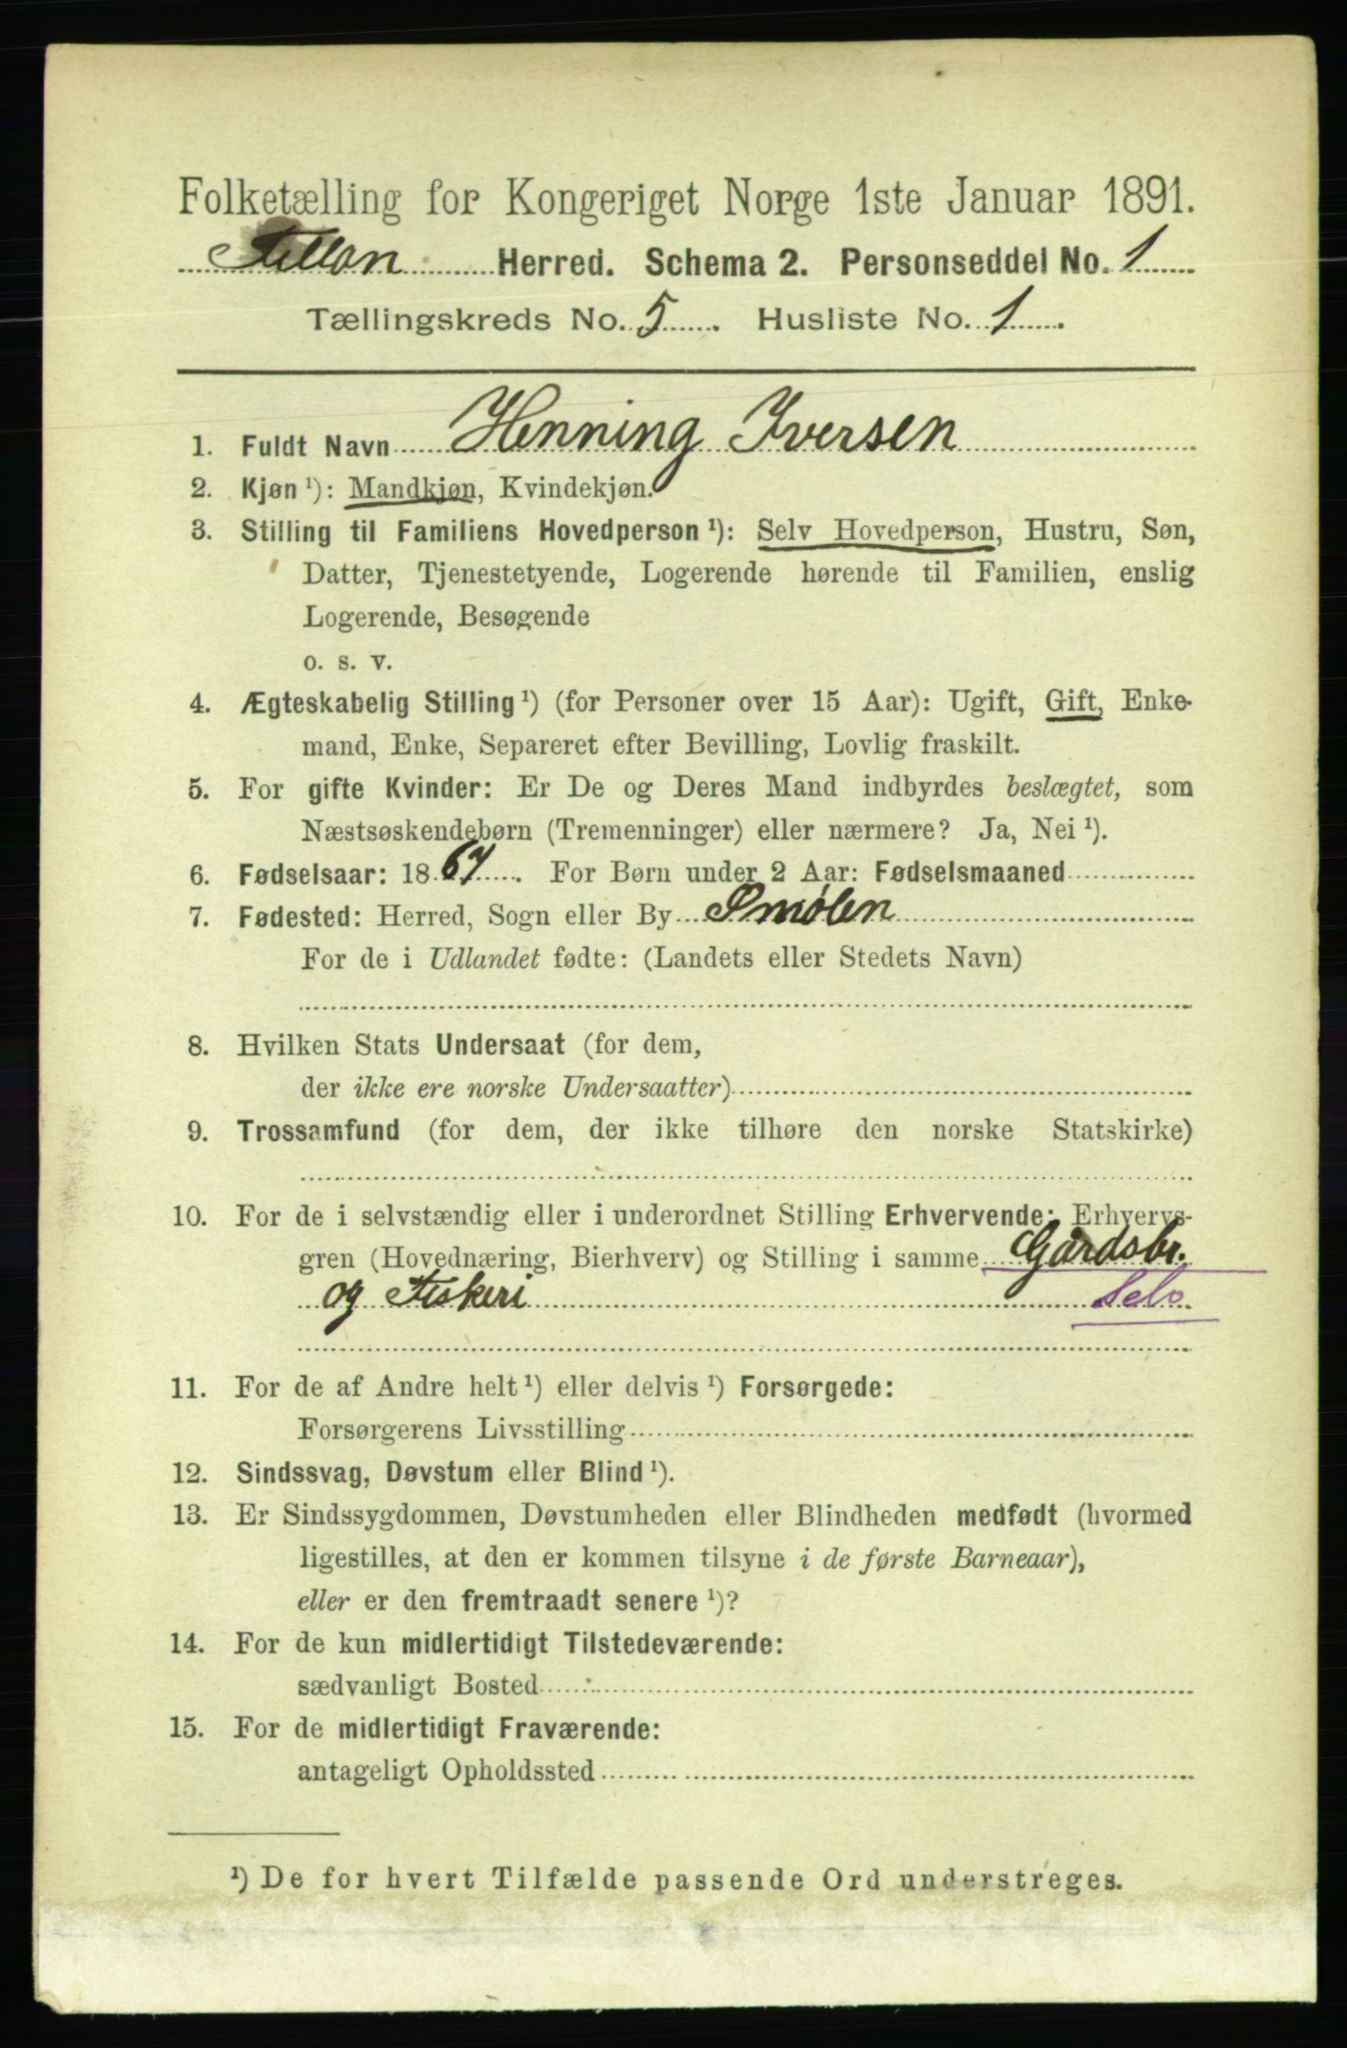 Folketælling for Kongeriget Norge 1ste Januar 1891.
Fillan Herred. Schema 2. Personseddel No. 1
Tællingskreds No. 5. Husliste No. 1.
1. Fuldt Navn Henning Iversen
2. Kjøn ¹): Mandkjøn, Kvindekjøn.
3. Stilling til Familiens Hovedperson ¹): Selv Hovedperson, Hustru, Søn,
Datter, Tjenestetyende, Logerende hørende til Familien, enslig
Logerende, Besøgende
o. s. v.
4. Ægteskabelig Stilling ¹) (for Personer over 15 Aar): Ugift, Gift, Enke-
mand, Enke, Separeret efter Bevilling, Lovlig fraskilt.
5. For gifte Kvinder: Er De og Deres Mand indbyrdes beslægtet, som
Næstsøskendebørn (Tremenninger) eller nærmere? Ja, Nei ¹).
6. Fødselsaar: 1867. For Børn under 2 Aar: Fødselsmaaned
7. Fødested: Herred, Sogn eller By Smølen
For de i Udlandet fødte: (Landets eller Stedets Navn)
8. Hvilken Stats Undersaat (for dem,
der ikke ere norske Undersaatter)
9. Trossamfund (for dem, der ikke tilhøre den norske Statskirke)
10. For de i selvstændig eller i underordnet Stilling Erhvervende: Erhvervs-
gren (Hovednæring, Bierhverv) og Stilling i samme Gårdsbr.
og Fiskeri Selv
11. For de af Andre helt ¹) eller delvis ¹) Forsørgede:
Forsørgerens Livsstilling
12. Sindssvag, Døvstum eller Blind ¹).
13. Er Sindssygdommen, Døvstumheden eller Blindheden medfødt (hvormed
ligestilles, at den er kommen tilsyne i de første Barneaar),
eller er den fremtraadt senere ¹)?
14. For de kun midlertidigt Tilstedeværende:
sædvanligt Bosted
15. For de midlertidigt Fraværende:
antageligt Opholdssted
¹) De for hvert Tilfælde passende Ord understreges.